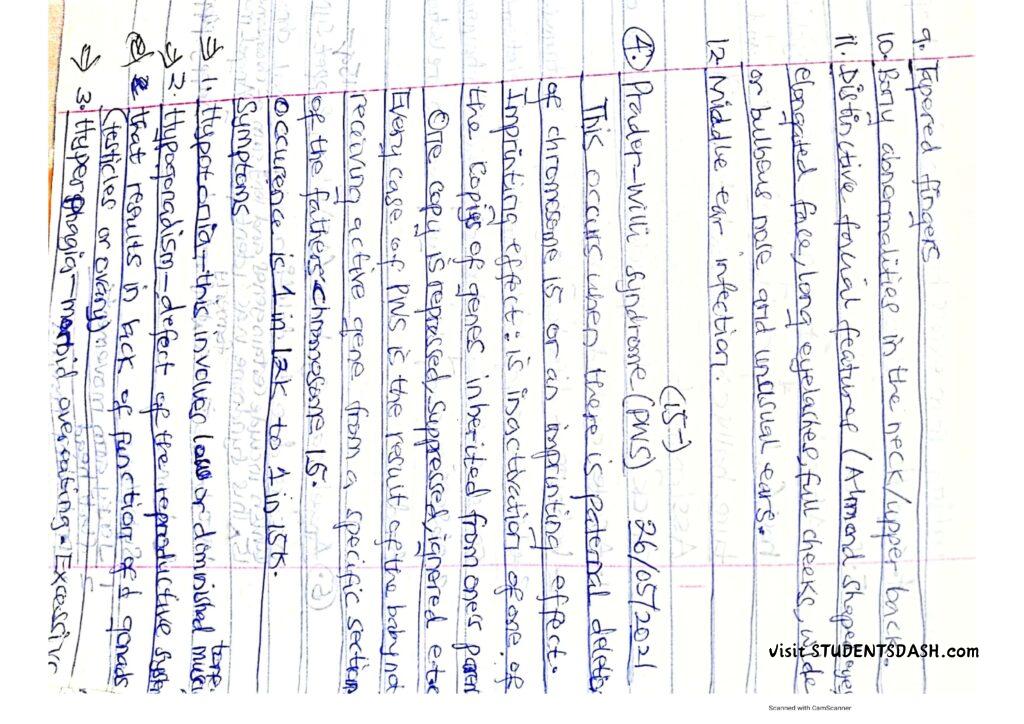 9. Tapered fingers
10. Bony abnormalities in the neck/upper back.
11. Distinctive facial feature (Almond shape eyes
elongated face, long eyelashes, full cheeks, wide
or bulbous nose and unusual ears.
12. Middle ear infection.
(15-)
4. Prader-Willi syndrome (PWS) 26/05/2021
This occurs when there is paternal deletio
of chromosome 15 or an imprinting effect.
Imprinting effect: is inactivation of one of
the copies of genes inherited from one's paren
One copy is repressed, suppressed, ignored etc
Every case of PWS is the result of the baby not
receiving active gene from a specific section
of the father's chromosome 15.
Occurence is 1 in 12k to 1 in 15k.
Symptoms
→ 1. Hypotonia - this involves low or dominished muscl tone
→ 2. Hypogonadism - defect of the reproductive syste
that results in lack of function of d gonads
(testicles or ovary)
→ 3. Hyperphagia - morbid overeating. Excessive
visit STUDENTSDASH.com
Scanned with CamScanner